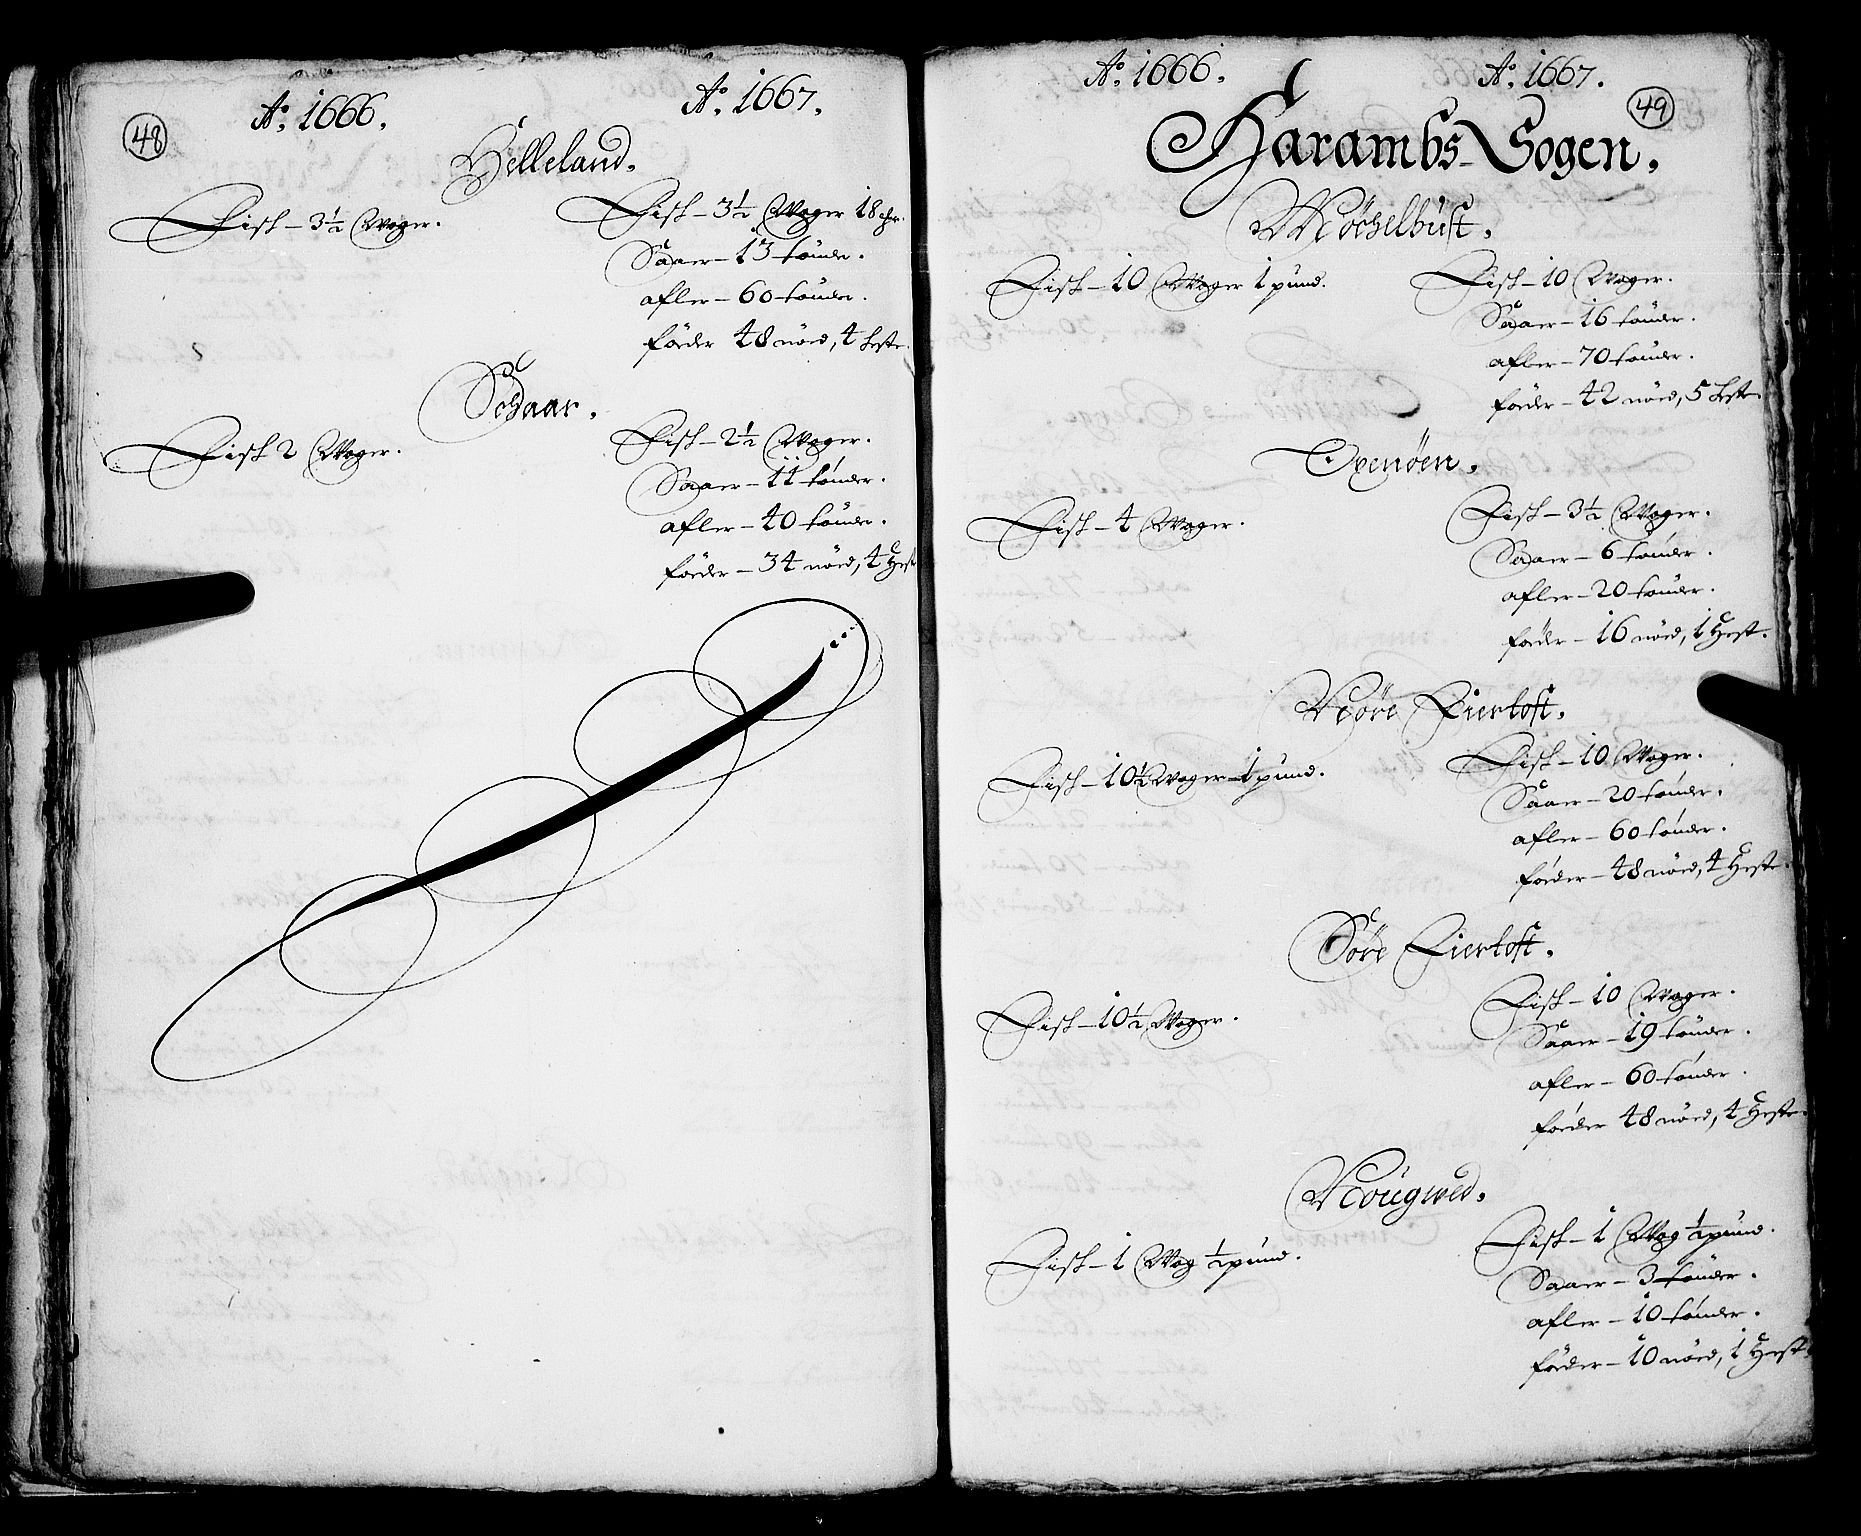 48
Ao. 1666.
Ao. 1667.
Helleland.
Fisk – 3½ Woger.
Fisk – 3½ Woger 18
Saaer – 13 tønder.
afler – 60 tønder.
føeder 48 nöed, 4 Heste
Schaar.
Fisk 2 Woger.
Fisk – 2½ Woger.
Saaer – 11 tønder.
afler – 40 tønder.
føeder – 34 nöed, 4 Hest
Ao. 1666.
Ao. 1667.
49
Harambs-Sogen.
Möchelbüst.
Fisk – 10 Woger 1 pund.
Fisk – 10 Woger.
Saaer – 16 tønder.
afler – 70 tønder.
føeder – 42 nöed, 5 Heste.
Oxenöen.
Fisk – 4 Woger.
Fisk – 3½ Woger.
Saaer – 6 tønder.
afler – 20 tønder.
føeder – 16 nöed, 1 Hest.
Nöre Fiertoft.
Fisk – 10½ Woger – 1 pund.
Fisk – 10 Woger.
Saaer – 20 tønder.
afler – 60 tønder.
føeder – 48 nöed, 4 Heste.
Söre Fiertoft.
Fisk – 10½ Woger.
Fisk – 10 Woger.
Saaer – 19 tønder.
afler – 60 tønder.
føeder 48 nöed, 4 Heste.
Rougwed.
Fisk – 1 Wog ½ pund.
Fisk – 1 Wog ½ pund.
Saaer – 3 tønder.
afler – 10 tønder.
føeder – 10 nöed, 1 Hest.